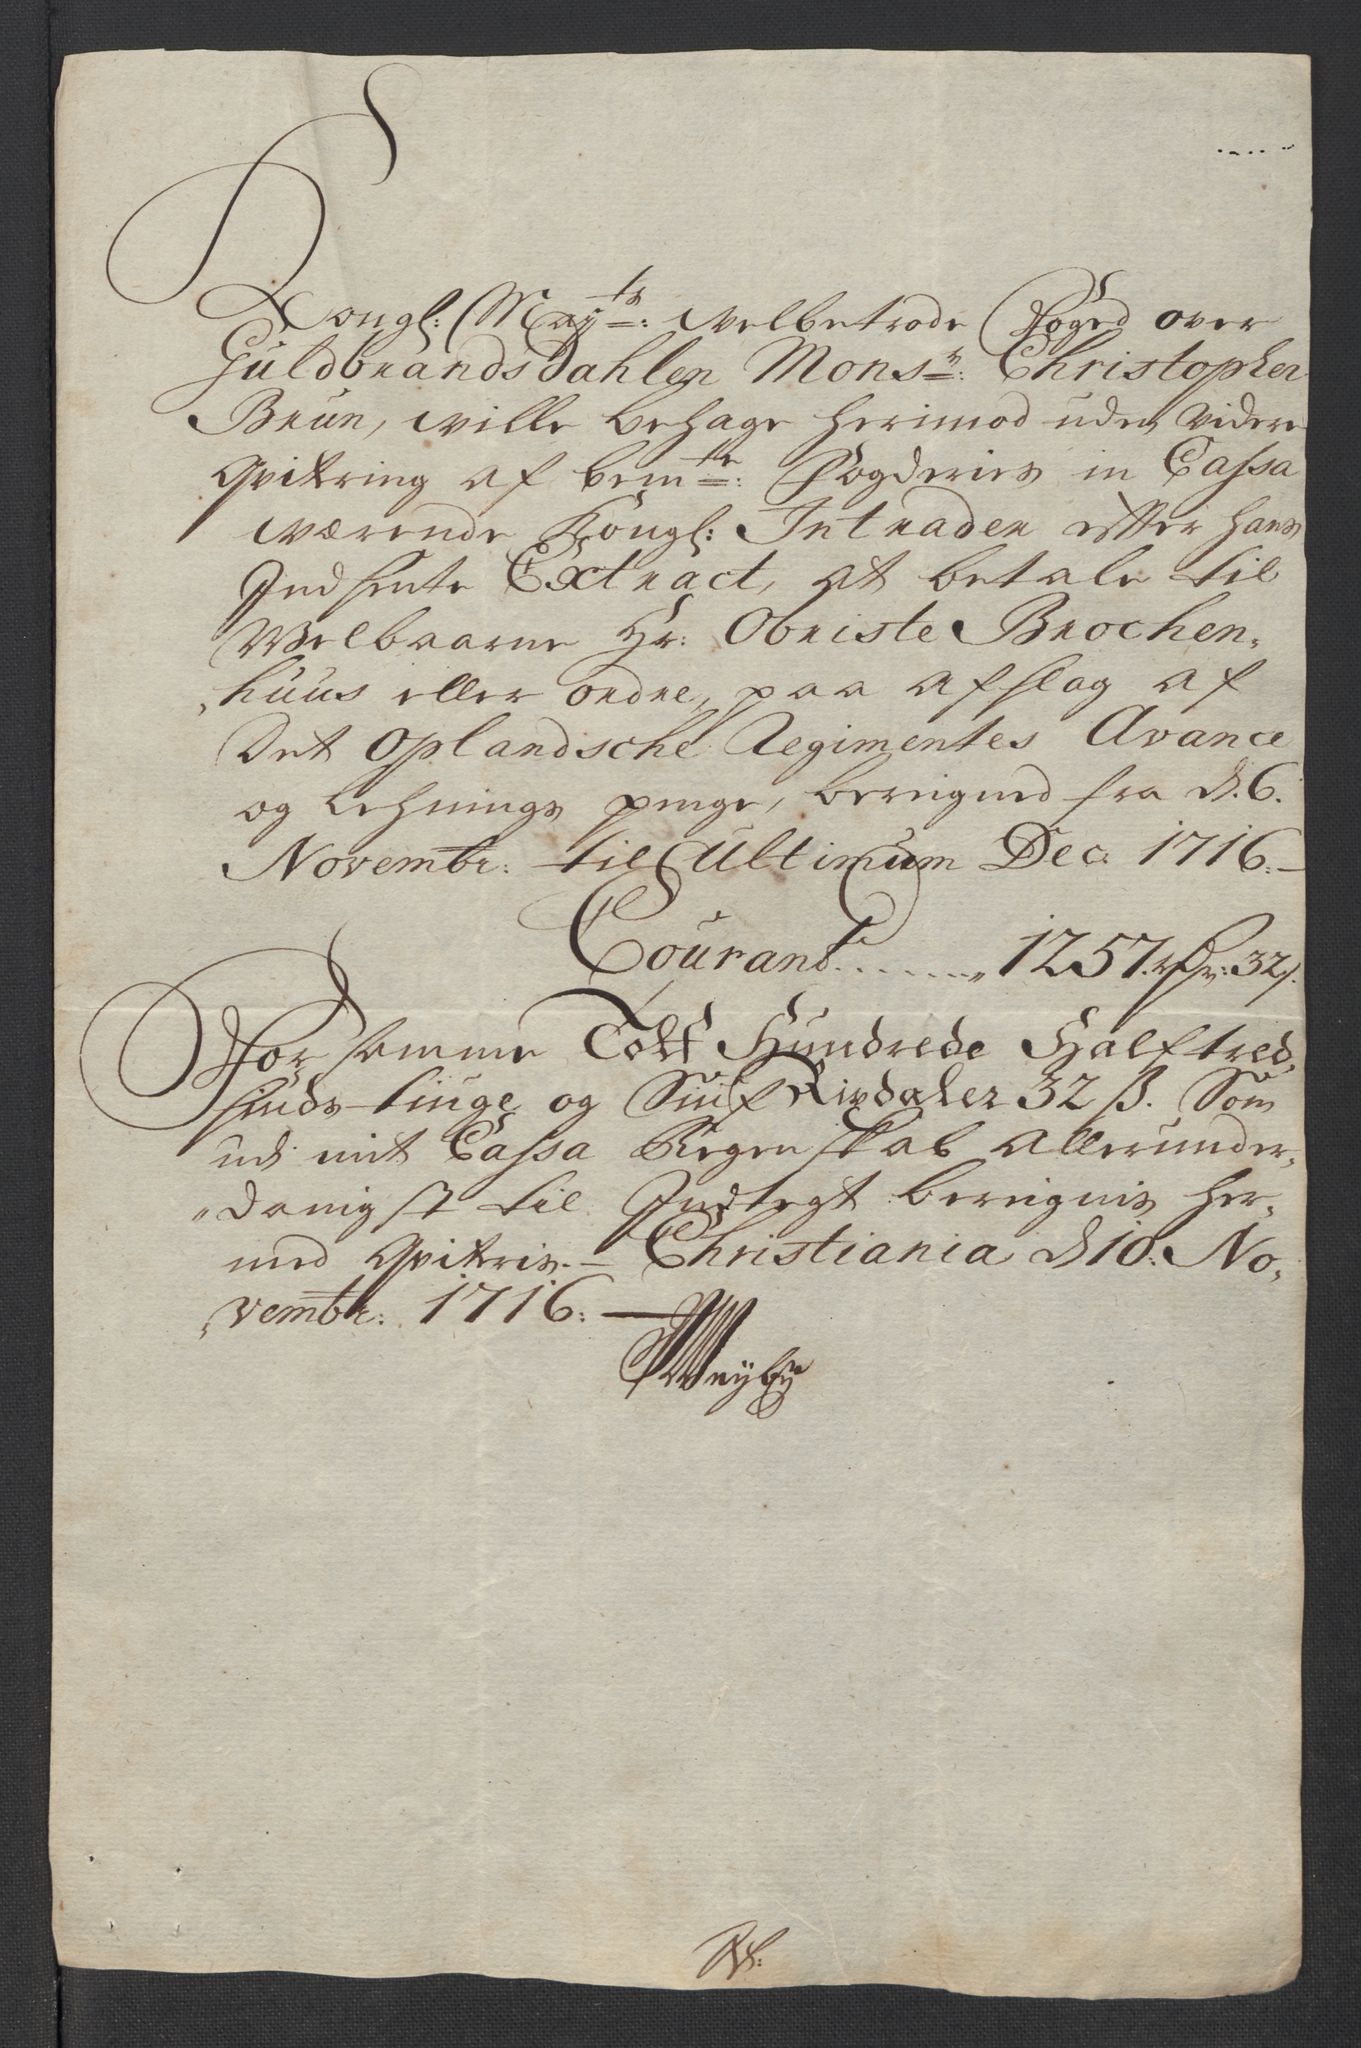 Kongl: May:ts velbetrode Foged over
Guldbrandsdahlen Monsr: Christopher
Brun, wille behage herimod uden videre
Qvitering af bemte: Fogderies in Cassa
værende Kongl: Intrader efter hans
Indsente Extract, at betale til
Welbaarne Hr: Obriste Brochen,
,huus eller ordre, paa afslag af
Det Oplandsche Regimentes Avance
og Lehnings penge, beregned fra d. 6.
Novembr: til Ultimum Dec: 1716:
Courant ........ 1257. rdr: 32 s.
For samme Tolf Hundrede Halftred,
sinds tiuge og Siuf Rixdaler 32 ß. Som
udi mit Cassa Regenskab allerunder,
,danigst til Indtegt beregnis her,
med Qviteris. Christiania d 10: No,
,vembr: 1716:
Weyby